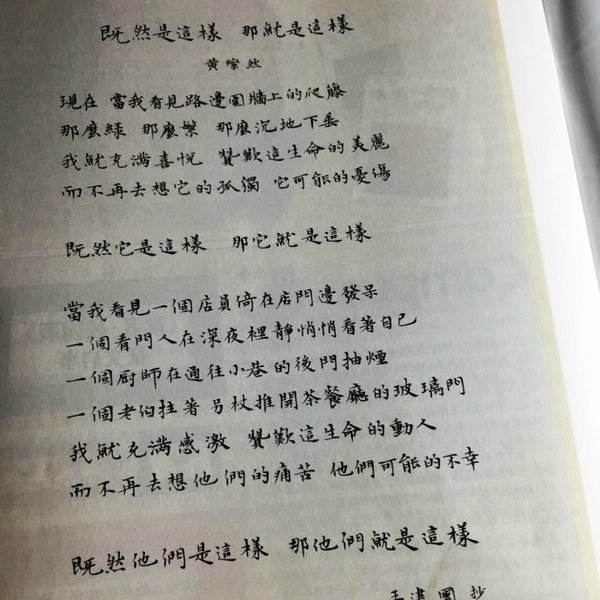 既然是這樣 那就是這樣
黄燦然
現在 當我看見路邊圍牆上的爬藤
那麼緑 那麼繁 那麼沉地下垂
我就充滿喜悅 贊歎這生命的美麗
而不再去想它的孤獨 它可能的憂傷
既然它是這樣 那它就是這樣
當我看見一個店員倚在店門邊發呆
一個看門人在深夜裡靜悄悄看著自己
一個厨師在通往小巷的後門抽煙
一個老伯拄著另杖推開茶餐廳的玻璃門
我就充滿感激 贊歎這生命的動人
而不再去想他們的痛苦 他們可能的不幸
既然他們是這樣 那他們就是這樣
國 抄